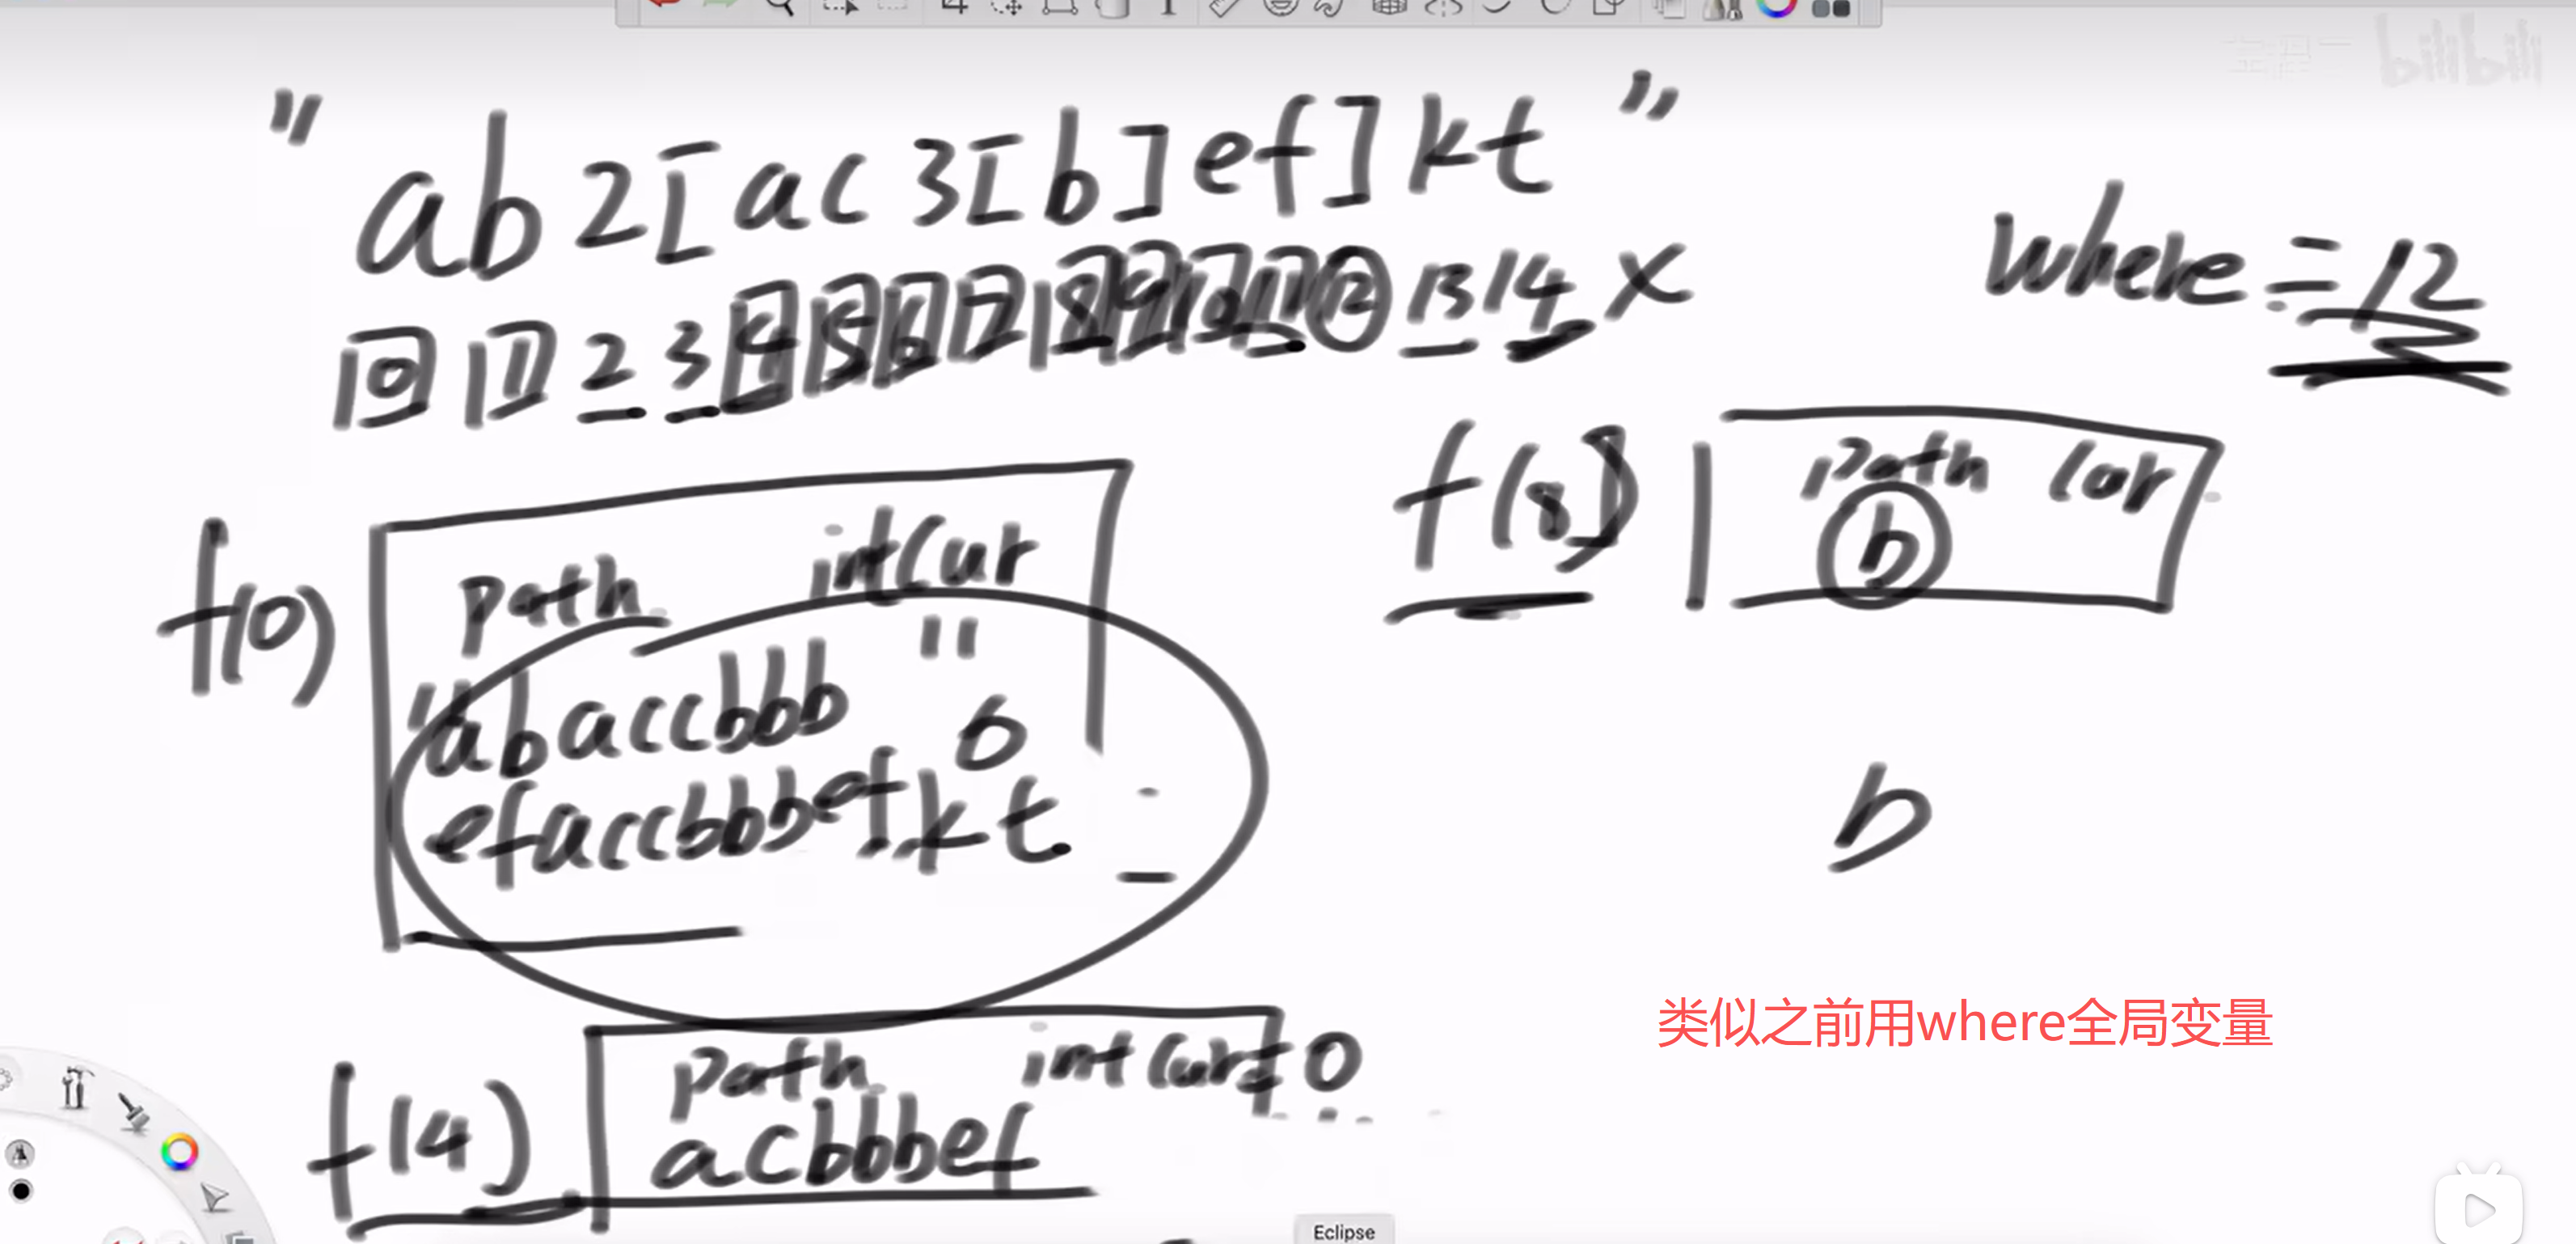 bilibili
"ab2[ac3[b]ef]kt"
0 1 2 3 4 5 6 7 8 9 10 11 12 13 14 x
where = 12
f(8) path cur
b
f(0) path int cur
"abaccbbb 0
efaccbbbef kt
b
类似之前用where全局变量
f(4) path int cur=0
acbbbef
Eclipse